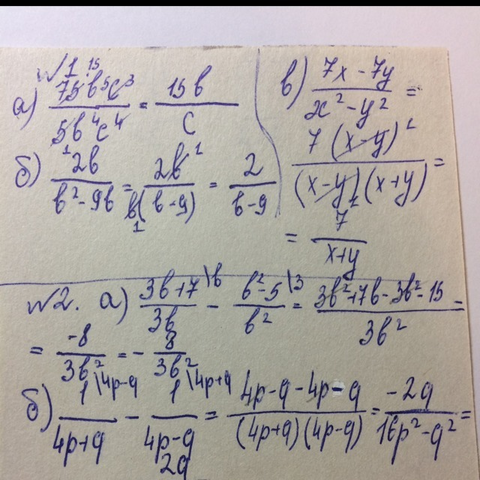 №1
а) 75b⁵c³ / 5b⁴c⁴ = 15b / c
б) 2b / b² - 9b = 2b / b(b - 9) = 2 / b - 9
в) 7x - 7y / x² - y² =
7(x - y) / (x - y)(x + y) =
= 7 / x + y
№2. а) 3b + 7 \b / 3b - b² - 5 \3 / b² = 3b² + 7b - 3b² - 15 / 3b² =
= -8 / 3b² = - 8 / 3b²
б) 1 \4p - q / 4p + q - 1 \4p + q / 4p - q = 4p - q - 4p - q / (4p + q)(4p - q) = -2q / 16p² - q² =
2q